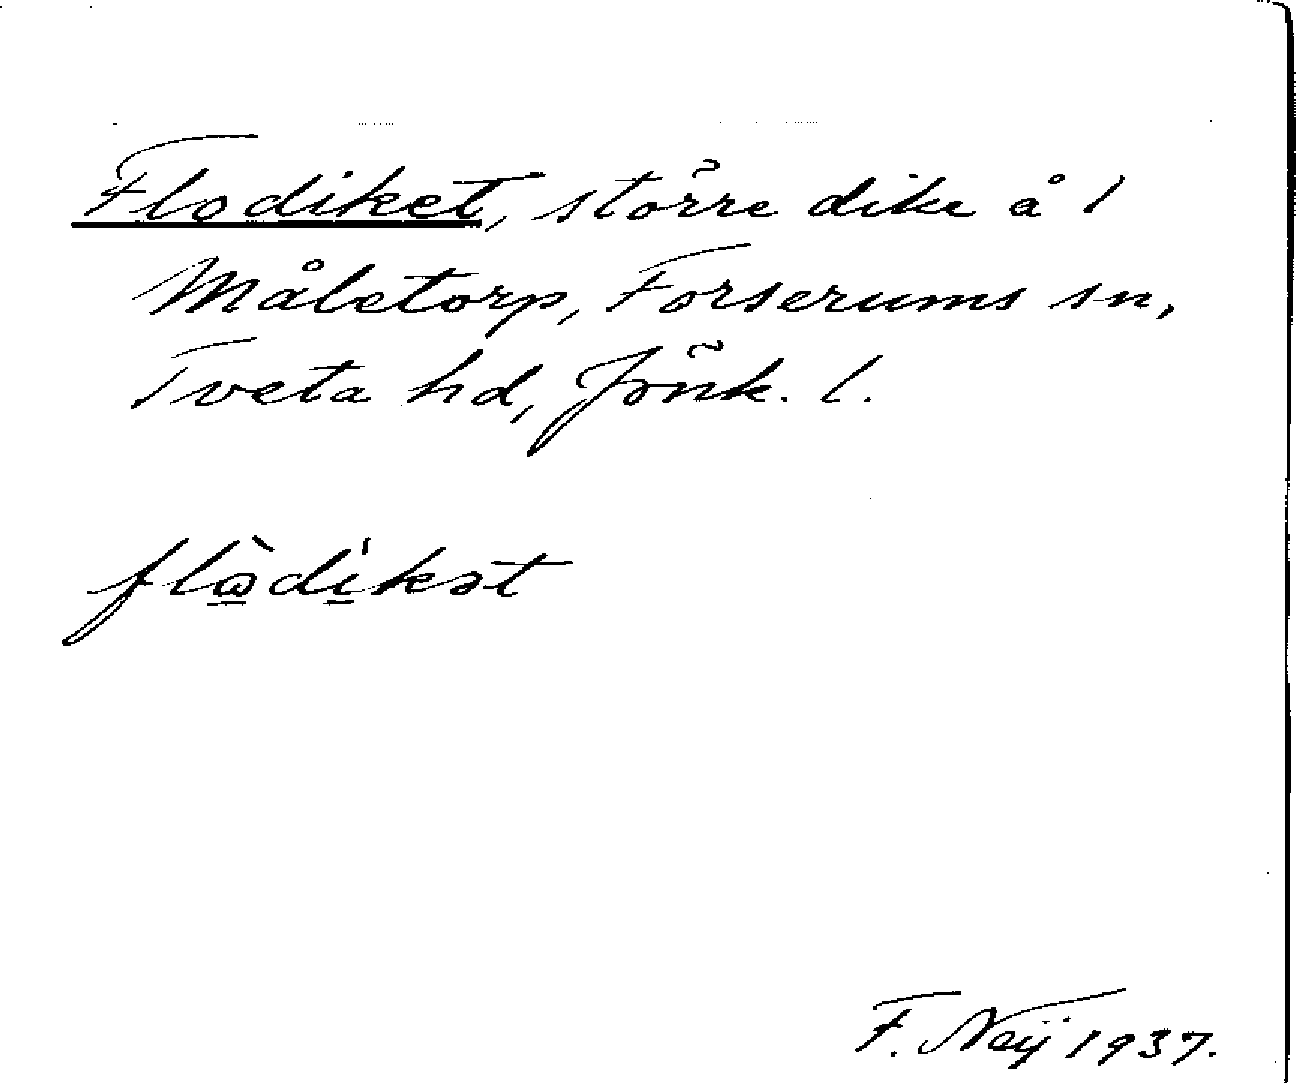 Flodiket, större dike å 1
Måletorp, Forserums sn,
Tveta hd, Jönk. l.
flὼdi̍kət
F. Neij 1937.